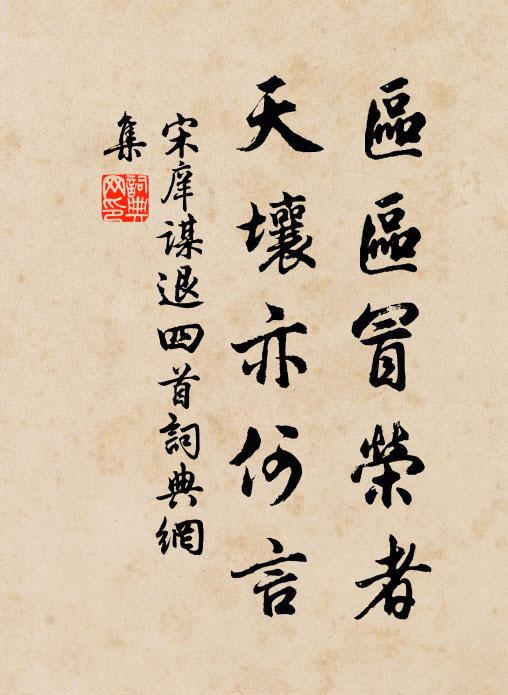 區區冒榮者
天壤亦何言
宋庠謀退四首詞典網
集
詞典
網印